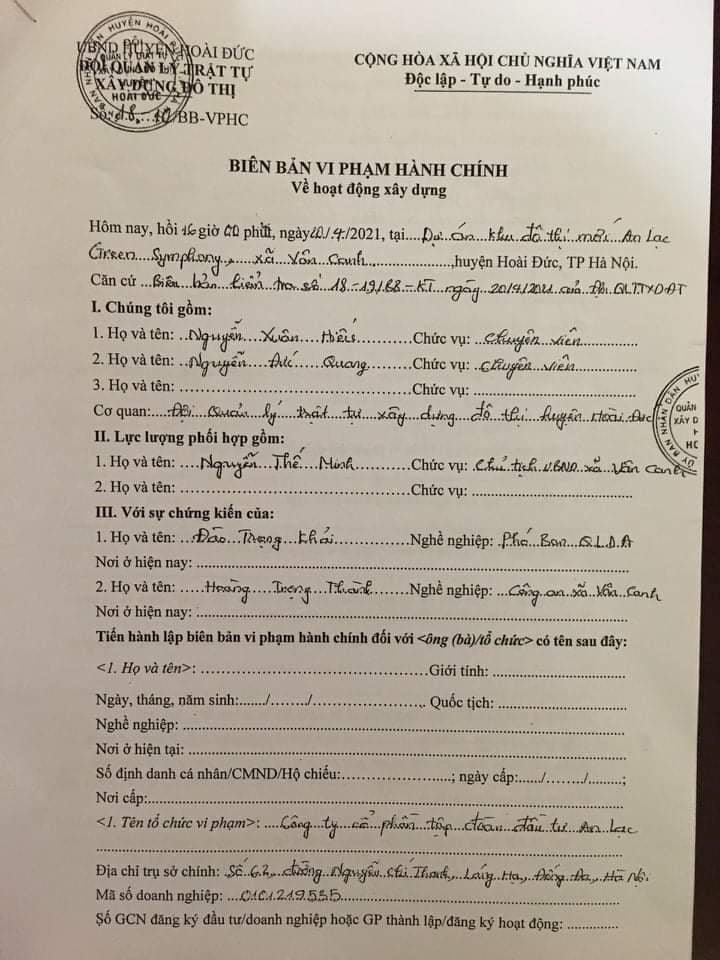 UBND HUYỆN HOÀI ĐỨC
ĐỘI QUẢN LÝ TRẬT TỰ
XÂY DỰNG ĐÔ THỊ
Số: 18.-19/BB-VPHC
CỘNG HÒA XÃ HỘI CHỦ NGHĨA VIỆT NAM
Độc lập - Tự do - Hạnh phúc
BIÊN BẢN VI PHẠM HÀNH CHÍNH
Về hoạt động xây dựng
Hôm nay, hồi 16 giờ 00 phút, ngày 20/4/2021, tại Dự án khu đô thị mới An Lạc
Green Symphony, xã Vân Canh, huyện Hoài Đức, TP Hà Nội.
Căn cứ Biên bản kiểm tra số 18-19/BB-KT ngày 20/4/2021 của Đội QLTTXDĐT
I. Chúng tôi gồm:
1. Họ và tên: Nguyễn Xuân Hiếu Chức vụ: Chuyên viên
2. Họ và tên: Nguyễn Đức Quang Chức vụ: Chuyên viên
3. Họ và tên: Chức vụ:
Cơ quan: Đội Quản lý trật tự xây dựng đô thị huyện Hoài Đức
II. Lực lượng phối hợp gồm:
1. Họ và tên: Nguyễn Thế Minh Chức vụ: Chủ tịch UBND xã Vân Canh
2. Họ và tên: Chức vụ:
III. Với sự chứng kiến của:
1. Họ và tên: Đào Trọng Khải Nghề nghiệp: Phó Ban QLDA
Nơi ở hiện nay:
2. Họ và tên: Hoàng Trọng Thành Nghề nghiệp: Công an xã Vân Canh
Nơi ở hiện nay:
Tiến hành lập biên bản vi phạm hành chính đối với <ông (bà)/tổ chức> có tên sau đây:
<1. Họ và tên>: Giới tính:
Ngày, tháng, năm sinh:....../......../ Quốc tịch:
Nghề nghiệp:
Nơi ở hiện tại:
Số định danh cá nhân/CMND/Hộ chiếu: ; ngày cấp:....../......./.........;
Nơi cấp:
<1. Tên tổ chức vi phạm>: Công ty cổ phần tập đoàn đầu tư An Lạc
Địa chỉ trụ sở chính: Số 62, đường Nguyễn Chí Thanh, Láng Hạ, Đống Đa, Hà Nội
Mã số doanh nghiệp: 0101219535
Số GCN đăng ký đầu tư/doanh nghiệp hoặc GP thành lập/đăng ký hoạt động: